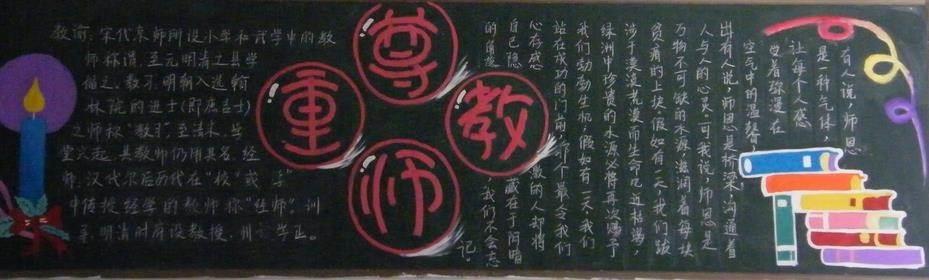 尊
重
教
师
教谕:宋代京师所设小学和武学中的教
师称谓。至元明清之县学
循之。教习:明朝入选翰
林院的进士(即庶吉士)
之师称“教习”。至清末,学
堂兴起,其教师仍用其名。经
师:汉代尔后历代在“校”或“学”
中传授经学的教师称“经师”。训
导:明清时府设教授,州设学正。
有人说,师恩
是一种气体,
让每个人感
觉着弥漫在
空气中的温馨
出有人说,师恩是桥梁,沟通着
人与人的心灵。可我说,师恩是
万物不可缺的水源,滋润着每块
贫瘠的土块。假如有一天,我们跋
涉于漫漫荒漠而生命几近枯竭,
绿洲中珍贵的水源必将再次赐予
我们勃勃生机;假如有一天,我们
站在成功的门前,那个最令我们
心存感激的人却将
自己隐藏在于阴暗
的角落,我们不会忘
记